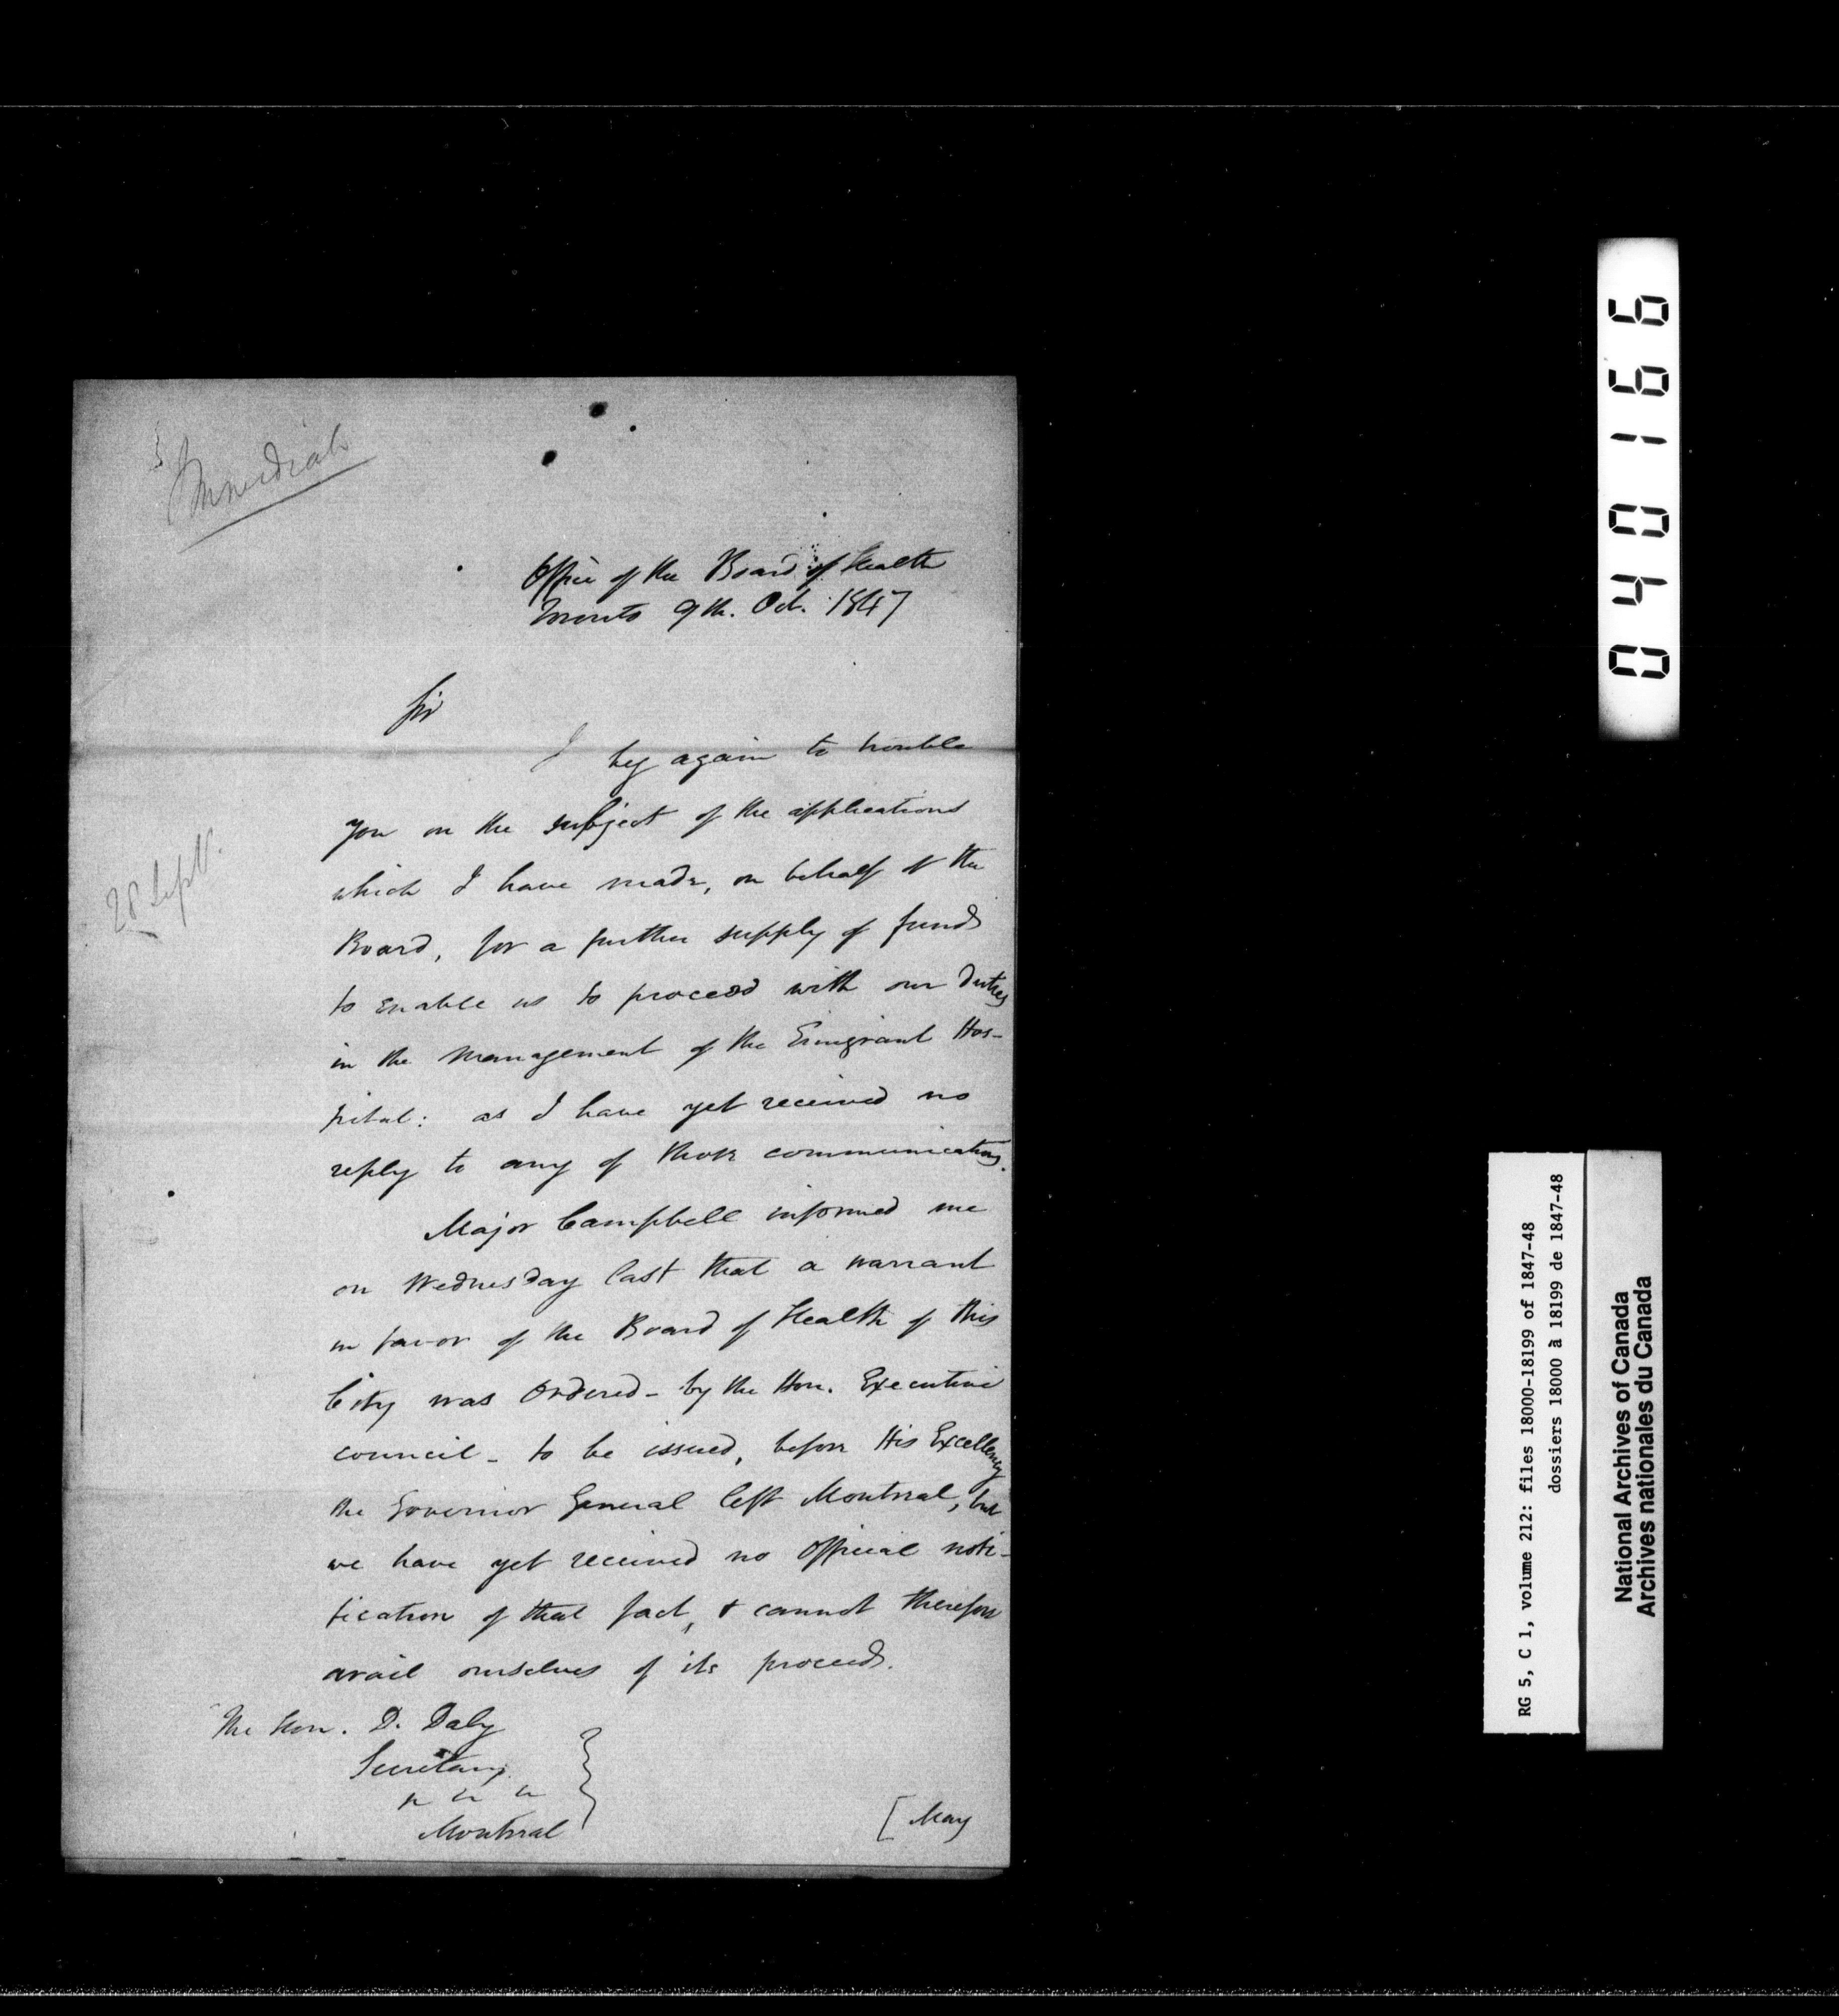 Immediate
Office of the Board of Health
Toronto 9th. Oct. 1847
Sir
I beg again to trouble
you on the subject of the applications
which I have made, on behalf of the
Board, for a further supply of funds
to enable us to proceed with our duties
in the management of the Emigrant Hos-
pital: as I have yet received no
reply to any of those communications.
28 Septr.
Major Campbell informed me
on Wednesday last that a warrant
in favor of the Board of Health of this
City was ordered - by the Hon. Executive
council - to be issued, before His Excellency
the Governor General left Montreal, but
we have yet received no official noti-
fication of that fact, & cannot therefore
avail ourselves of its proceeds.
The Hon. D. Daly
Secretary
" " "
Montreal
[ May
040166
RG 5, C 1, volume 212: files 18000-18199 of 1847-48
dossiers 18000 à 18199 de 1847-48
National Archives of Canada
Archives nationales du Canada